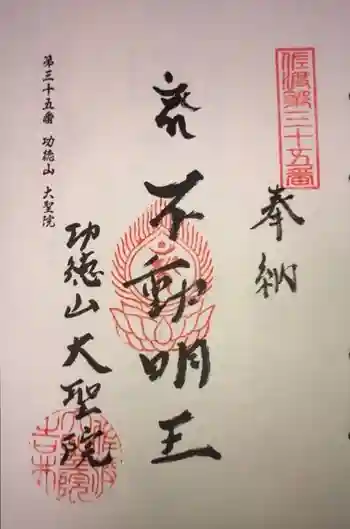 佐波第三十五番
奉納
不動明王
功徳山大聖院
第三十五番 功徳山 大聖院